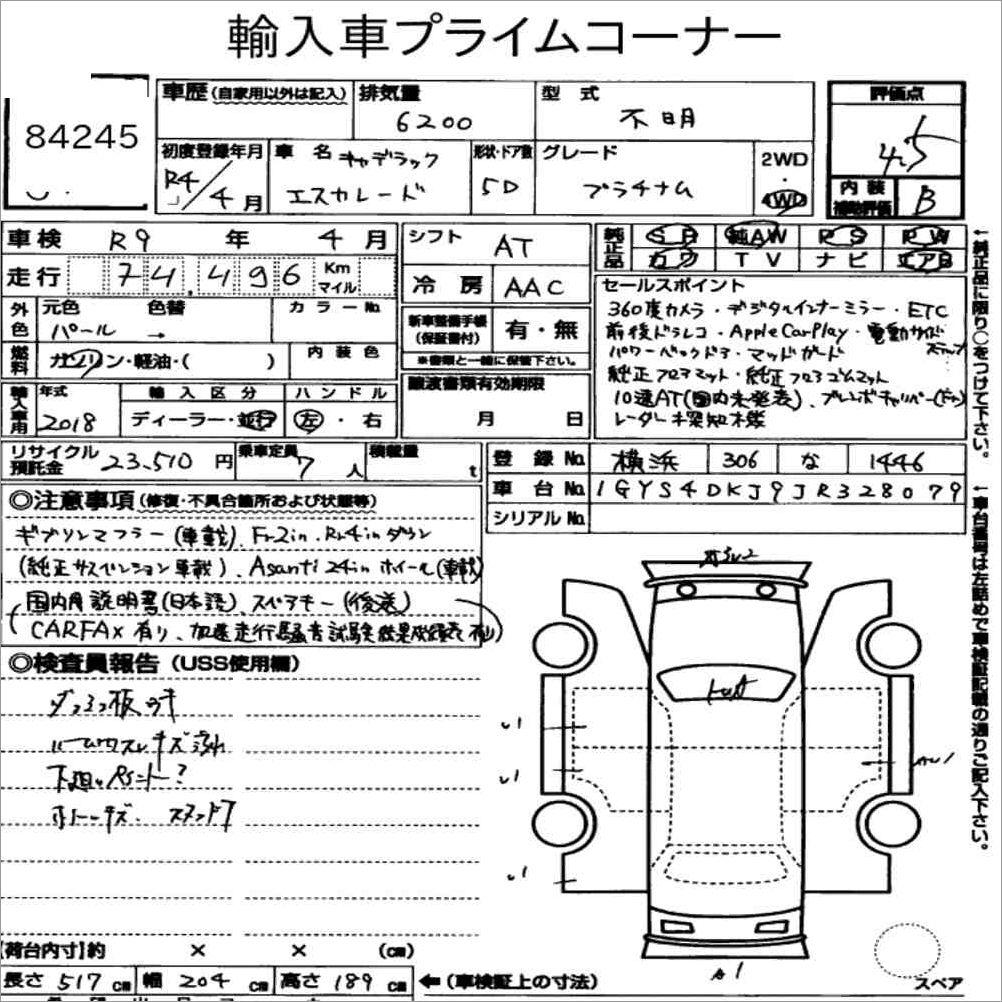 輸入車プライムコーナー
84245
車歴 (自家用以外は記入) 排気量 型式 評価点
6200 不明 4.5
初度登録年月 車名 キャデラック 形状・ドア数 グレード 2WD
R4/4月 エスカレード 5D プラチナム ・4WD
内装補助評価 B
車検 R9年 4月 シフト AT
純正品 SR 純AW PS PW
カワ TV ナビ エアB
走行 74,496 Km マイル 冷房 AAC
セールスポイント
360度カメラ・デジタルインナーミラー・ETC
前後ドラレコ・AppleCarPlay・電動サイドステップ
パワーバックドア・マッドガード
純正フロアマット・純正フロアゴムマット
10速AT(国内未発表)、ブレンボキャリパー(Fr)
レーダー探知機
外色 元色 色替 カラーNo
パール →
新車整備手帳(保証書付) 有・無
※書類と一緒に保管下さい。
燃料 ガソリン・軽油・( ) 内装色
譲渡書類有効期限
月 日
輸入車用 年式 輸入区分 ハンドル
2018 ディーラー・並行 左・右
リサイクル預託金 23,510円 乗車定員 7人 積載量 t
登録No 横浜 306 な 1446
車台No 1GYS4DKJ9JR328079
シリアルNo
◎注意事項 (修復・不具合箇所および状態等)
ギブソンマフラー(車載)、Fr2in、Rr4inダウン
(純正サスペンション車載)、Asanti 24inホイール(車載)
国内用説明書(日本語)、スペアキー(後送)
(CARFAX有り、加速走行騒音試験結果成績表有り)
◎検査員報告 (USS使用欄)
ルームワスレキズ汚れ
U1
U1
AU1
U1
A1
【荷台内寸】約 × × (cm)
長さ 517cm 幅 204cm 高さ 189cm ←(車検証上の寸法)
スペア
↑純正品に限り○をつけて下さい。
↑車台番号は左詰めで車検証記載の通りご記入下さい。